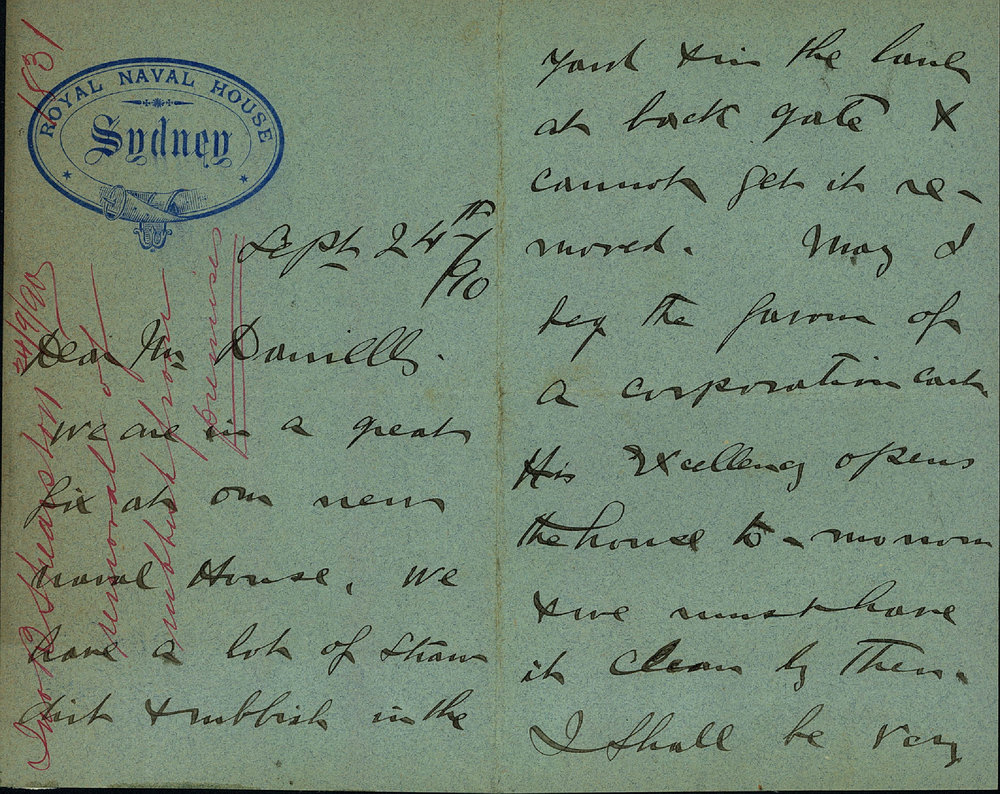 1531
ROYAL NAVAL HOUSE
Sydney
Sept 24th/90
Dear Mr Daniells.
We are in a great
fix at our new
Naval House. We
have a lot of straw
dirt & rubbish in the
yard & in the lane
at back gate &
cannot get it re-
moved. May I
beg the favour of
a corporation cart
His Excellency opens
the house to-morrow
& we must have
it clean by then.
I shall be very
Shearston 24/9/90
removal of
rubbish from
premises